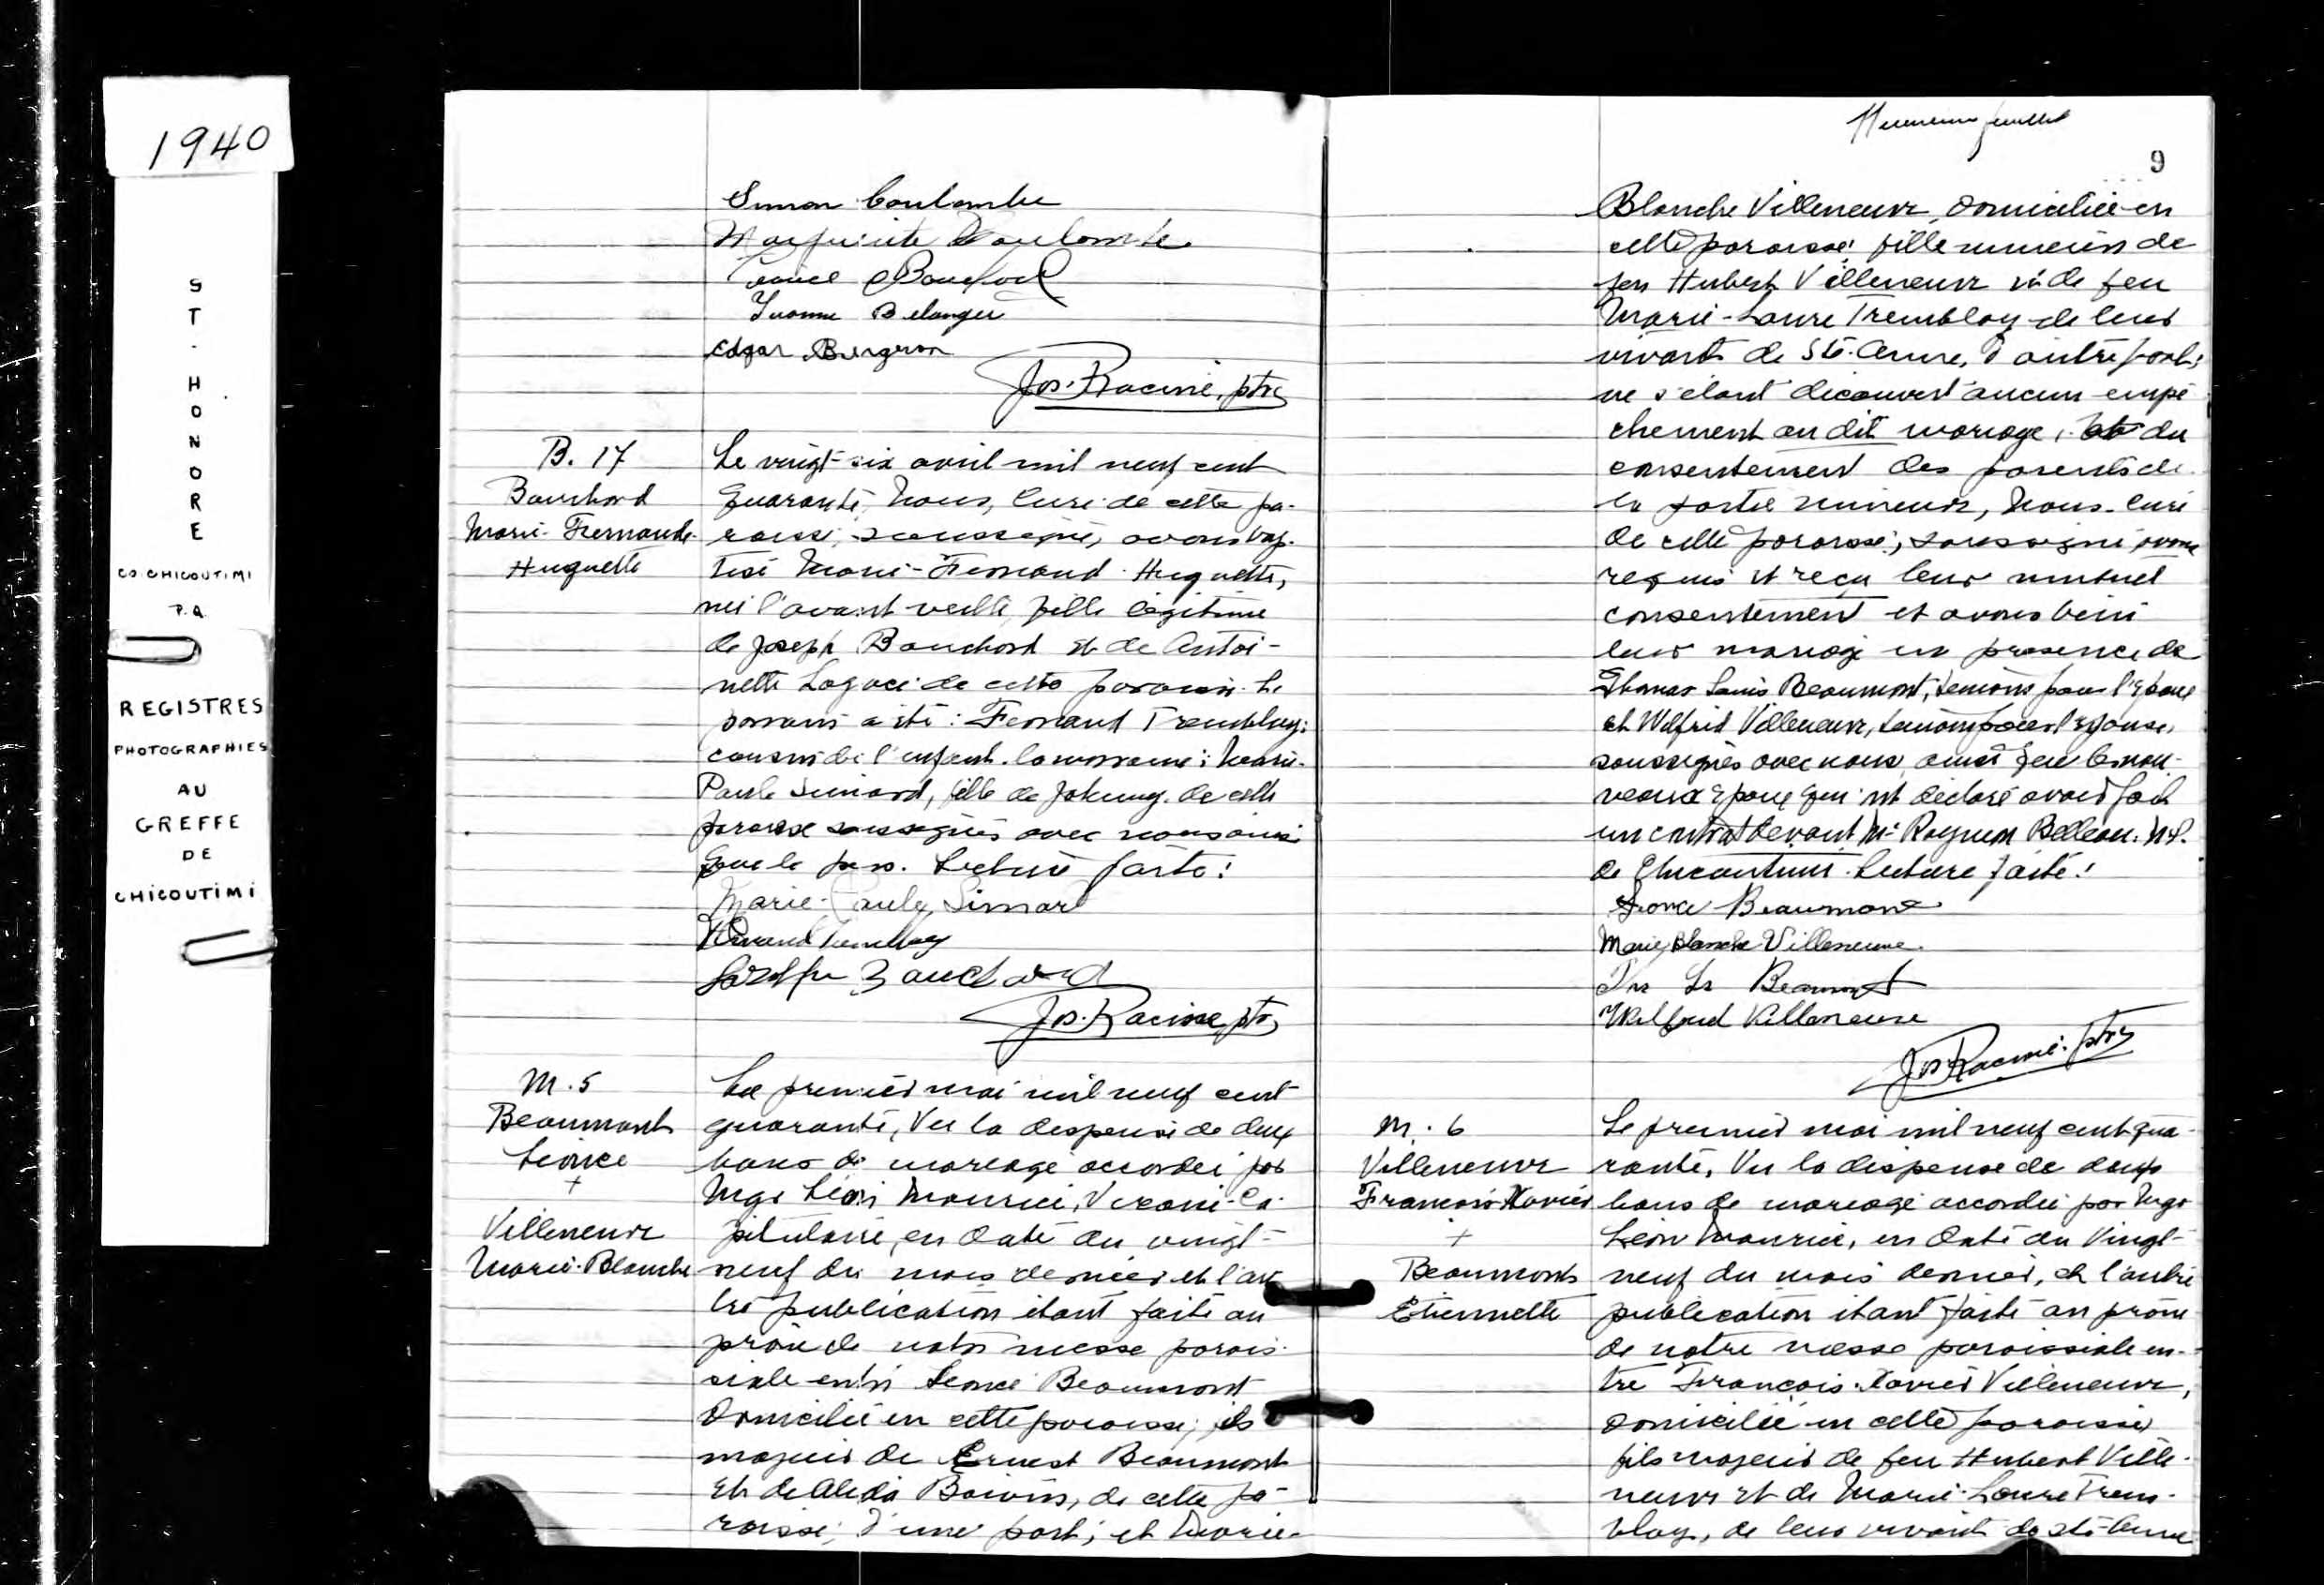 1940
ST. HONORE
CO. CHICOUTIMI
P.Q
REGISTRES
PHOTOGRAPHIES
AU
GREFFE
DE
CHICOUTIMI
Simon Coulombe
Marguerite Coulombe
Bouchard
Yvonne Belanger
Edgar Bergeron
Jos. Racine, ptre
B. 17
Bouchard
Marie-Fernande-
Huguette
Le vingt-six avril mil neuf cent
quarante, Nous, curé de cette pa-
roisse, soussigné, avons bap-
tisé Marie-Fernand-Huguette,
née l'avant veille, fille légitime
de Joseph Bouchard et de Antoi-
nette Lagacé de cette paroisse. Le
parrain a été: Fernand Tremblay,
cousin de l'enfant. la marraine: Marie-
Paule Simard, fille de de cette
paroisse soussignés avec nous ainsi
que le père. Lecture faite:
Marie-Paule Simard
Fernand Tremblay
Joseph Bouchard
Jos. Racine, ptre
M. 5
Beaumont
Léonce
+
Villeneuve
Marie-Blanche
Le premier mai mil neuf cent
quarante, Vu la dispense de deux
bans de mariage accordée par
Mgr Léon Maurice, Vicaire-Ca-
pitulaire, en date du vingt-
neuf du mois dernier et l'au
tre publication étant faite au
prône de notre messe parois-
siale entre Léonce Beaumont
domicilié en cette paroisse, fils
majeur de Ernest Beaumont
et de Alida Boivin, de cette pa-
roisse, d'une part; et Marie-
feuillet
9
Blanche Villeneuve, domiciliée en
cette paroisse, fille mineure de
feu Hubert Villeneuve et de feu
Marie-Laure Tremblay de leur
vivant de Ste-Anne, d'autre part;
ne s'étant découvert aucun empê
chement au dit mariage, et du
consentement des parents de
la partie mineure, Nous, curé
de cette paroisse, soussigné avons
requis et reçu leur mutuel
consentement et avons béni
leur mariage en présence de
Thomas Louis Beaumont, témoin pour l'époux
et Wilfrid Villeneuve, témoin pour l'épouse,
soussignés avec nous ainsi que les nou-
veaux époux qui ont déclaré avoir fait
un contrat devant Mr Raymond Belleau. N.P.
de Chicoutimi. Lecture faite:
Léonce Beaumont
Marie Blanche Villeneuve
Ths Ls Beaumont
Wilfrid Villeneuve
Jos. Racine. ptre
M. 6
Villeneuve
François-Xavier
+
Beaumont
Etiennette
Le premier mai mil neuf cent qua-
rante, Vu la dispense de deux
bans de mariage accordée par Mgr
Léon Maurice, en date du Vingt-
neuf du mois dernier, et l'autre
publication étant faite au prône
de notre messe paroissiale en-
tre François-Xavier Villeneuve,
domicilié en cette paroisse
fils majeur de feu Hubert Ville-
neuve et de Marie-Laure Trem-
blay, de leur vivant de Ste-Anne